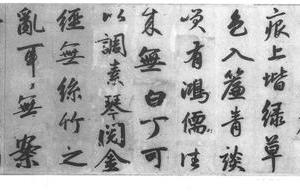 痕上堦綠草
色入簾青談
咲有鴻儒往
來無白丁可
以調素琴閱金
經無絲竹之
亂耳無案